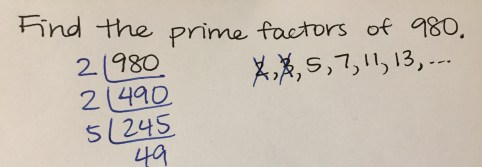 Find the prime factors of 980.
2 980 2, 3, 5, 7, 11, 13, ...
2 490
5 245
49